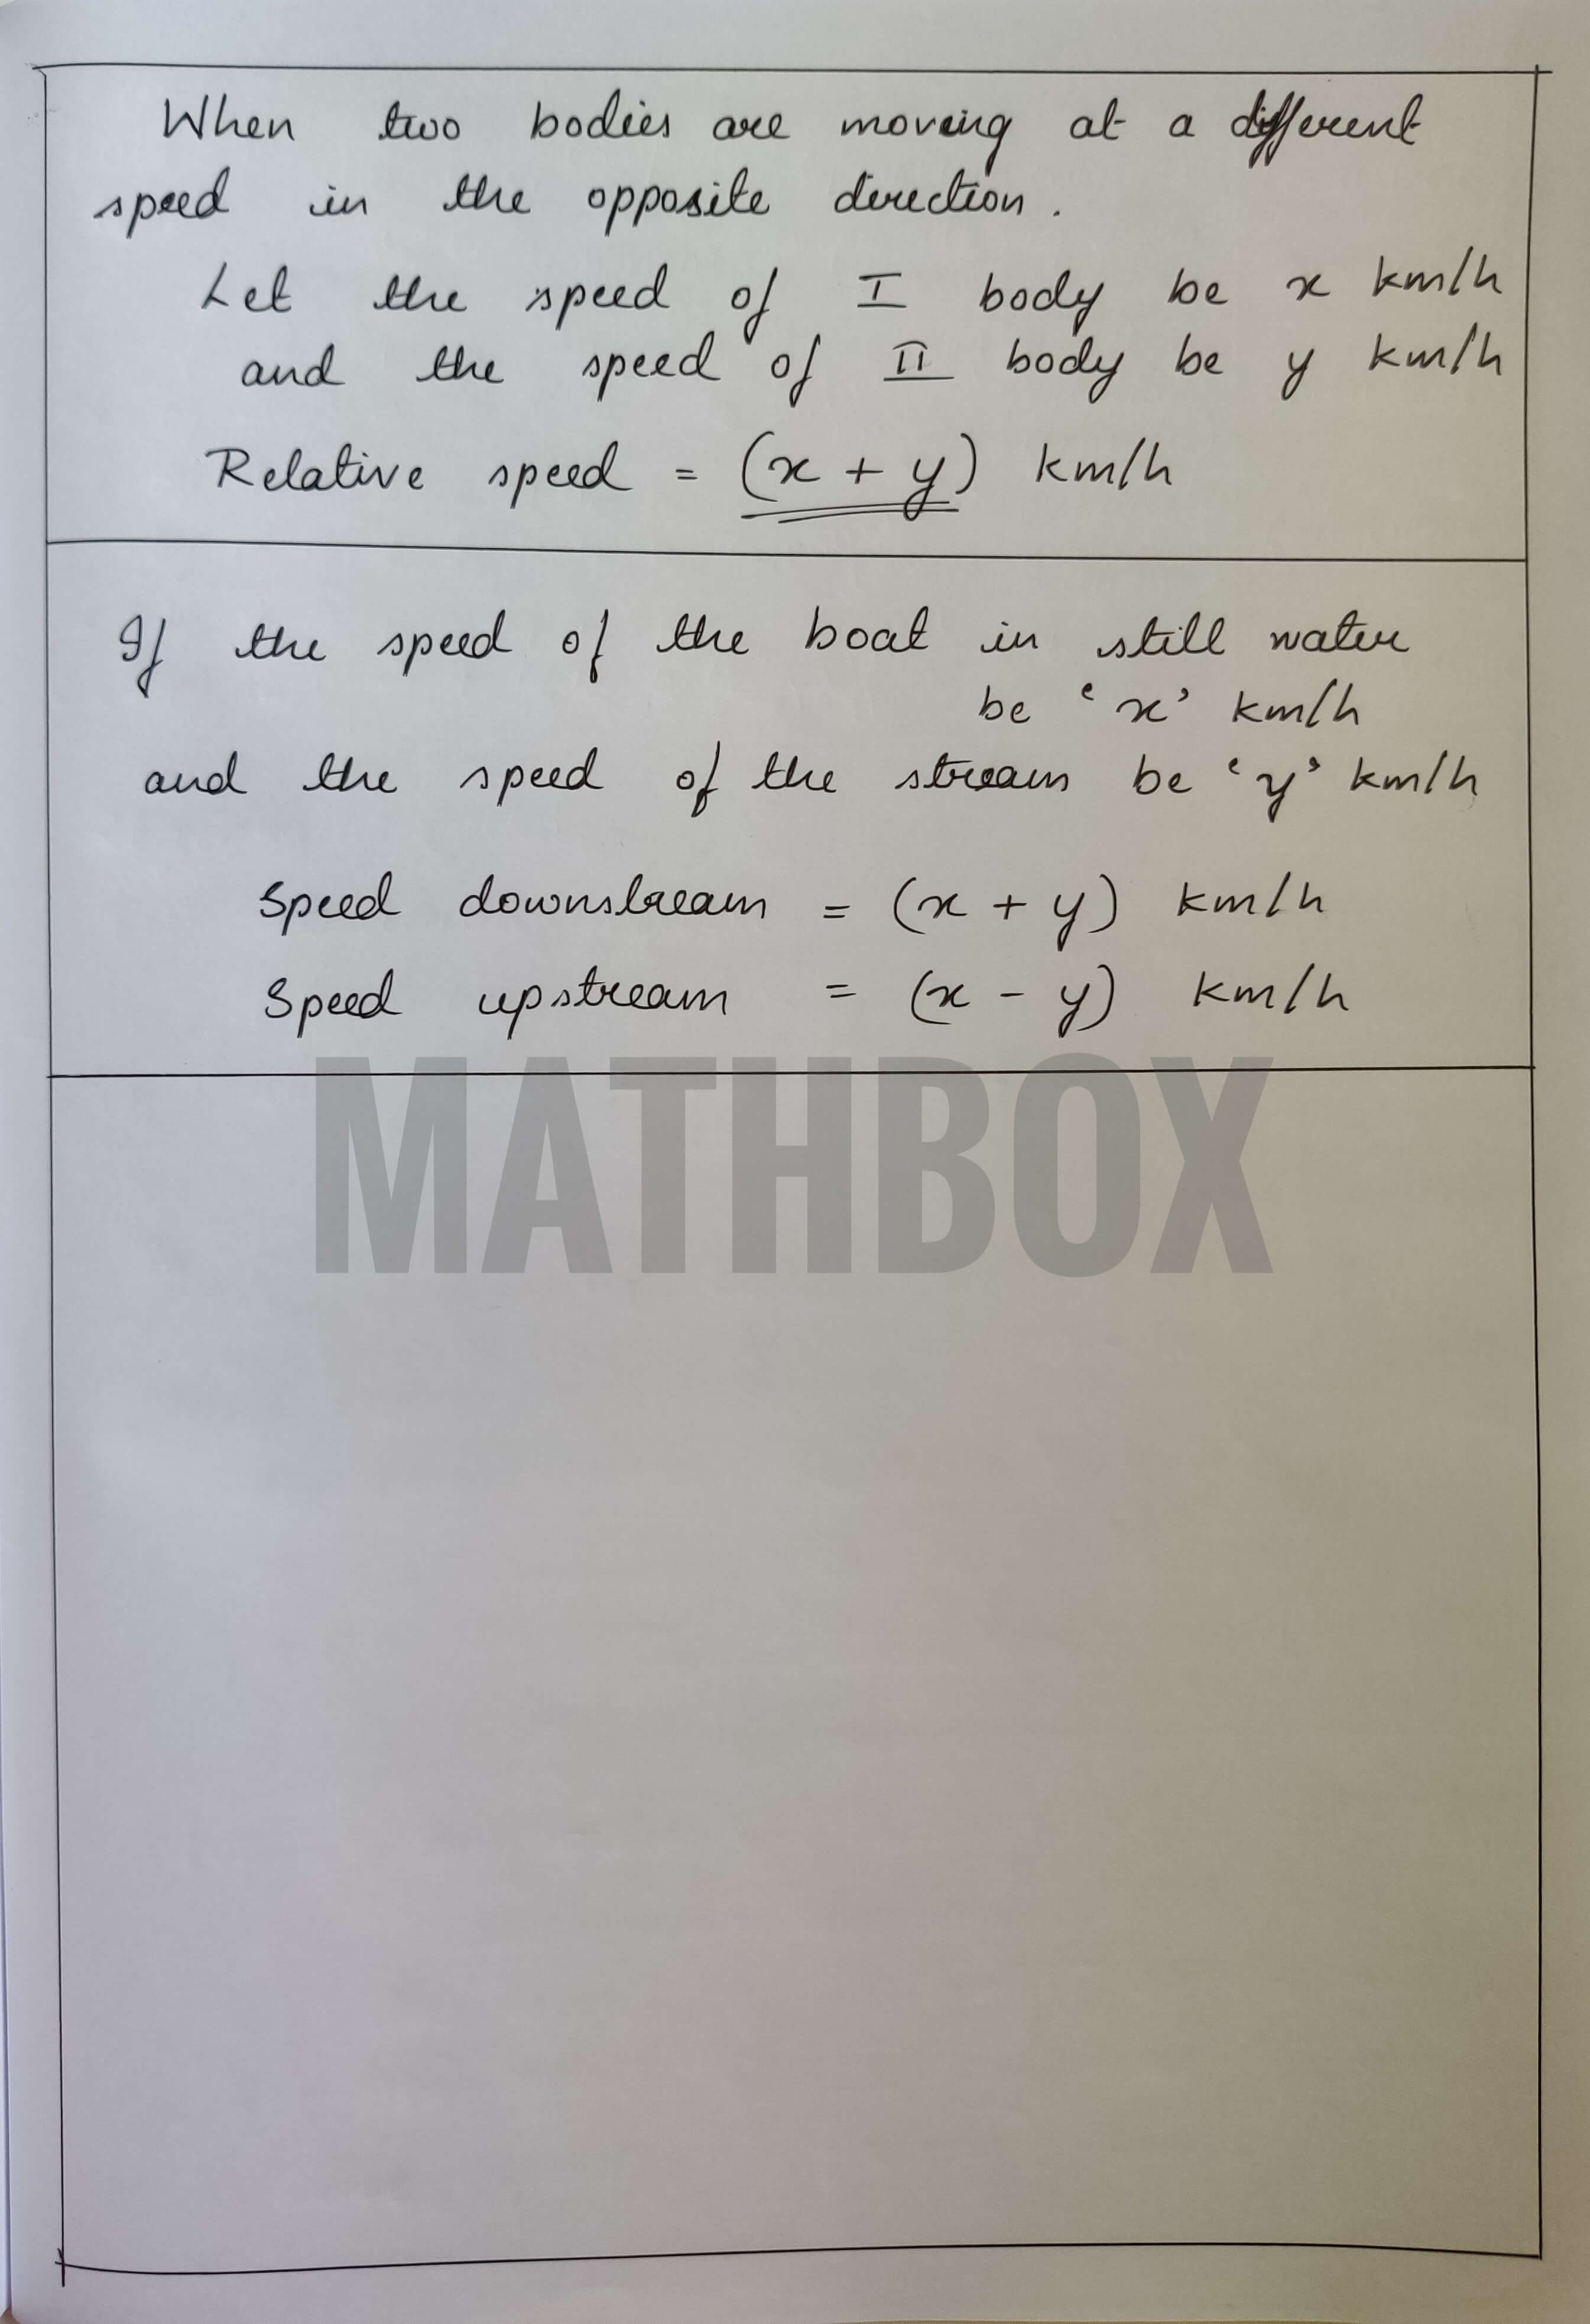 When two bodies are moving at a different
speed in the opposite direction.
Let the speed of I body be x km/h
and the speed of II body be y km/h
Relative speed = (x + y) km/h
If the speed of the boat in still water
be ‘x’ km/h
and the speed of the stream be ‘y’ km/h
Speed downstream = (x + y) km/h
Speed upstream = (x - y) km/h
MATHBOX